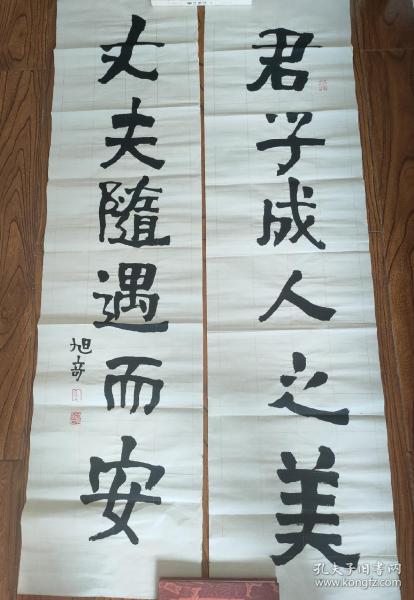 君子成人之美
丈夫随遇而安
旭奇
孔夫子旧书网
www.kongfz.com